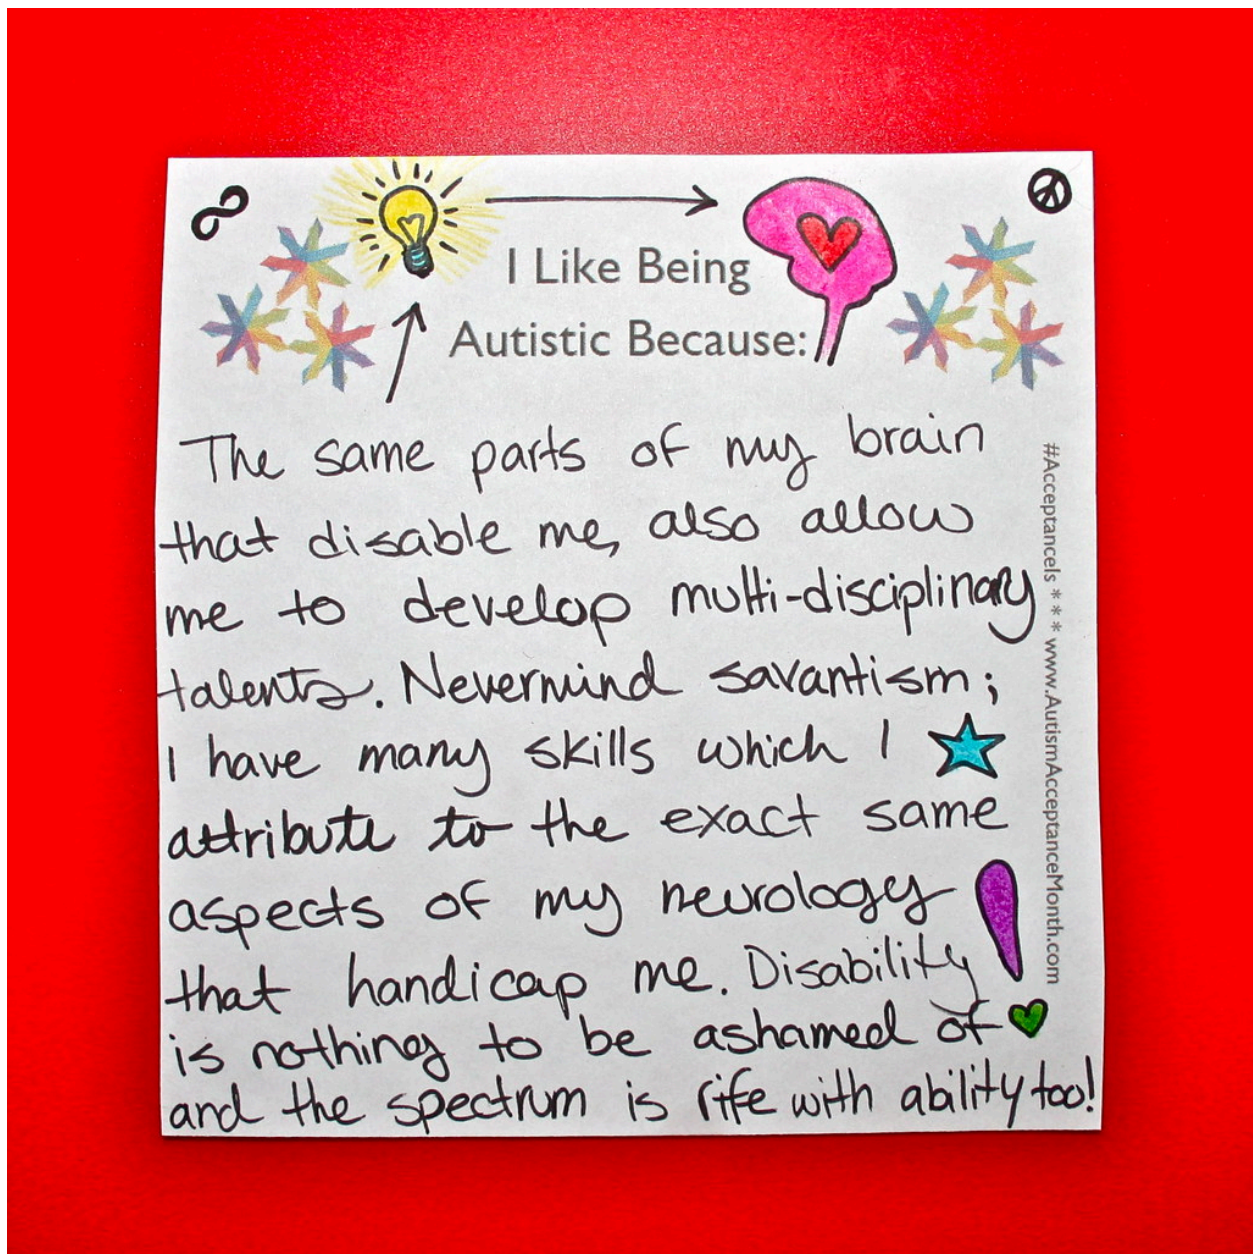 I Like Being
Autistic Because:
The same parts of my brain
that disable me, also allow
me to develop multi-disciplinary
talents. Nevermind savantism;
I have many skills which I
attribute to the exact same
aspects of my neurology
that handicap me. Disability
is nothing to be ashamed of
and the spectrum is rife with ability too!
#AcceptanceIs * * * www.AutismAcceptanceMonth.com